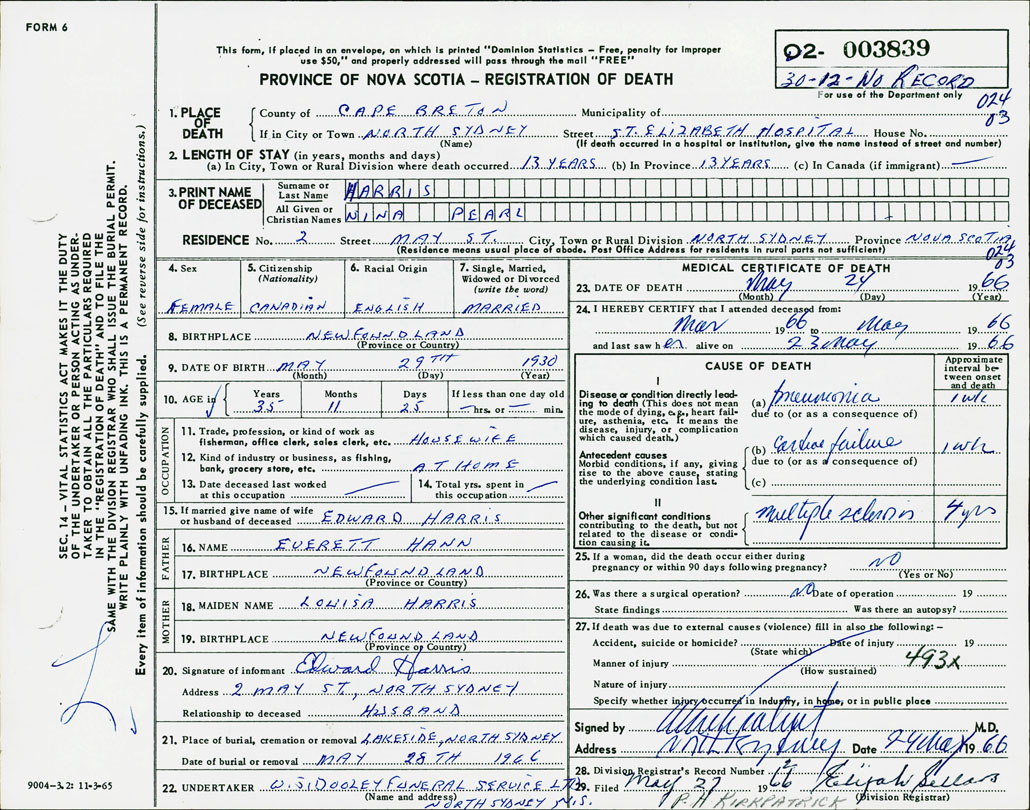 FORM 6
This form, if placed in an envelope, on which is printed "Dominion Statistics – Free, penalty for improper
use $50," and properly addressed will pass through the mail "FREE"
PROVINCE OF NOVA SCOTIA – REGISTRATION OF DEATH
02- 003839
30-12-No RECORD
For use of the Department only
024
03
1. PLACE OF DEATH
County of CAPE BRETON Municipality of
If in City or Town NORTH SYDNEY Street ST. ELIZABETH HOSPITAL House No.
(Name) (If death occurred in a hospital or institution, give the name instead of street and number)
2. LENGTH OF STAY (in years, months and days)
(a) In City, Town or Rural Division where death occurred 13 YEARS (b) In Province 13 YEARS (c) In Canada (if immigrant) —
3. PRINT NAME OF DECEASED
Surname or Last Name HARRIS
All Given or Christian Names NINA PEARL
RESIDENCE No. 2 Street MAY ST. City, Town or Rural Division NORTH SYDNEY Province NOVA SCOTIA
(Residence means usual place of abode. Post Office Address for residents in rural parts not sufficient)
024
03
4. Sex
FEMALE
5. Citizenship
(Nationality)
CANADIAN
6. Racial Origin
ENGLISH
7. Single, Married,
Widowed or Divorced
(write the word)
MARRIED
8. BIRTHPLACE NEWFOUNDLAND
(Province or Country)
9. DATE OF BIRTH MAY 29TH 1930
(Month) (Day) (Year)
10. AGE in
Years Months Days If less than one day old
35 11 25 — hrs. or — min.
OCCUPATION
11. Trade, profession, or kind of work as
fisherman, office clerk, sales clerk, etc. HOUSEWIFE
12. Kind of industry or business, as fishing,
bank, grocery store, etc. AT HOME
13. Date deceased last worked
at this occupation —
14. Total yrs. spent in
this occupation —
15. If married give name of wife
or husband of deceased EDWARD HARRIS
FATHER
16. NAME EVERETT HANN
17. BIRTHPLACE NEWFOUNDLAND
(Province or Country)
MOTHER
18. MAIDEN NAME LOUISA HARRIS
19. BIRTHPLACE NEWFOUNDLAND
(Province or Country)
20. Signature of informant Edward Harris
Address 2 MAY ST., NORTH SYDNEY
Relationship to deceased HUSBAND
21. Place of burial, cremation or removal LAKESIDE, NORTH SYDNEY
Date of burial or removal MAY 28TH 1966
22. UNDERTAKER W.J. DOOLEY FUNERAL SERVICE LTD
(Name and address) NORTH SYDNEY N.S.
MEDICAL CERTIFICATE OF DEATH
23. DATE OF DEATH May 24 1966
(Month) (Day) (Year)
24. I HEREBY CERTIFY that I attended deceased from:
Mar 1966 to May 1966
and last saw her alive on 23 May 1966
CAUSE OF DEATH
Approximate
interval be-
tween onset
and death
I
Disease or condition directly lead-
ing to death (This does not mean
the mode of dying, e.g., heart fail-
ure, asthenia, etc. It means the
disease, injury, or complication
which caused death.)
(a) pneumonia 1 wk
due to (or as a consequence of)
Antecedent causes
Morbid conditions, if any, giving
rise to the above cause, stating
the underlying condition last.
(b) cardiac failure 1 wk
due to (or as a consequence of)
(c)
II
Other significant conditions
contributing to the death, but not
related to the disease or condi-
tion causing it.
multiple sclerosis 4 yrs
25. If a woman, did the death occur either during
pregnancy or within 90 days following pregnancy? NO
(Yes or No)
26. Was there a surgical operation? NO Date of operation 19
State findings Was there an autopsy?
27. If death was due to external causes (violence) fill in also the following:–
Accident, suicide or homicide? Date of injury 19
(State which)
Manner of injury 493x
(How sustained)
Nature of injury
Specify whether injury occurred in industry, in home, or in public place
Signed by M.D.
Address Date 24 May 1966
28. Division Registrar's Record Number
29. Filed May 27 1966 Elijah Sellars
P.H KIRKPATRICK (Division Registrar)
SEC. 14 – VITAL STATISTICS ACT MAKES IT THE DUTY
OF THE UNDERTAKER OR PERSON ACTING AS UNDER-
TAKER TO OBTAIN ALL THE PARTICULARS REQUIRED
IN THE "REGISTRATION OF DEATH" AND TO FILE THE
SAME WITH THE DIVISION REGISTRAR WHO SHALL ISSUE THE BURIAL PERMIT.
WRITE PLAINLY WITH UNFADING INK. THIS IS A PERMANENT RECORD.
Every item of information should be carefully supplied. (See reverse side for instructions.)
9004-3.2: 11-3-65